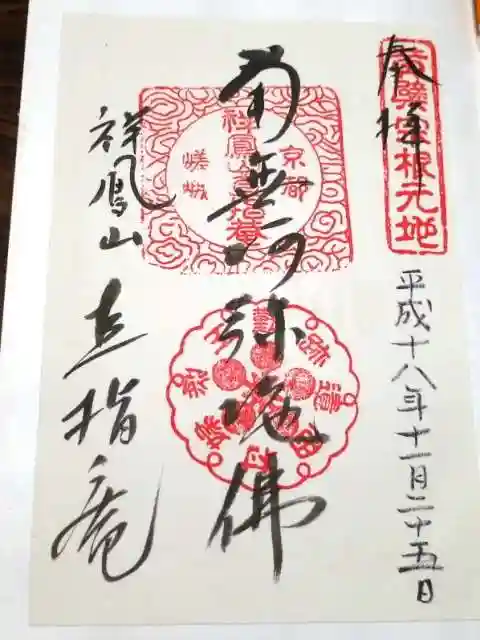 奉拝
平成十八年十一月二十五日
南無阿弥陀佛
祥鳳山
直指庵
黄檗宗根元地
京都
祥鳳山直指庵
嵯峨